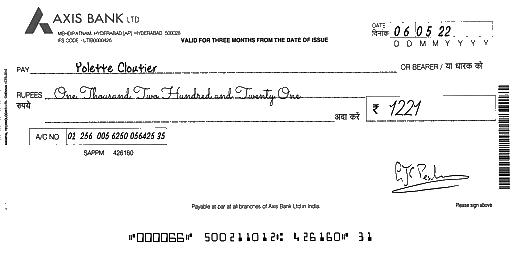 AXIS BANK LTD
MEHDIPATNAM, HYDERABAD [AP] HYDERABAD 500028
IFS CODE - UTIB0000426
VALID FOR THREE MONTHS FROM THE DATE OF ISSUE
DATE
दिनांक 06 05 22
D D M M Y Y Y Y
PAY Yolette Cloutier OR BEARER / या धारक को
RUPEES One Thousand Two Hundred and Twenty One
रुपये अदा करें ₹ 1221
A/C NO 02 256 005 6250 056425 35
SAPPM 426160
Payable at par at all branches of Axis Bank Ltd in India.
Please sign above
"000066" 500211012: 426160" 31